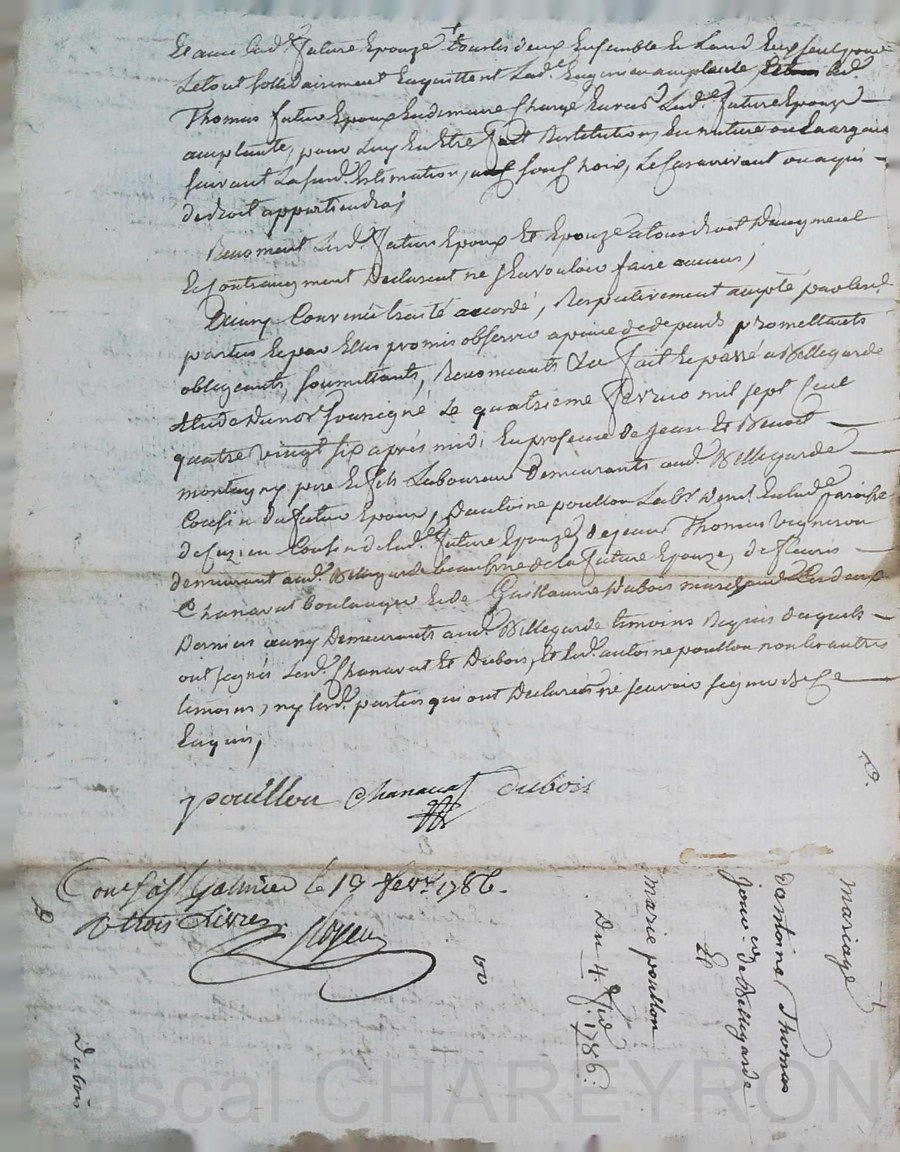 Et avec lad.e future Epouze tous les deux Ensemble Et Lun d'Eux seul pour
Letout sollidairement Enquittent Lad.e
Thomas futur Epoux Endemeure Chargé Envers Lad.e future Epouze
acceptante, pour Luy En Etre fait Restitution, En nature ou En argent
suivant Lasusd. Estimation, sous choix, Le cas arrivant ou a qui
dedroit appartiendra;
Renoncent Lesd. futurs Epoux Et Epouze atous droit D'augment
Et Contraugment Declarant ne s'En vouloir faire aucun;
Dainsy Convenu traité accordé, Respectivement accepté par lesd.
parties Et par Elles promis observer apeine de depends promettants
obligeants, soumettants, Renoncants &a fait Et passé a Bellegarde
Etude Du no.re soussigné Le quatrieme fevrier mil sept Cent
quatre vingt six après midi En presence de Jean Et Benoit
montagny pere Et fils Laboureur Demeurants aud. Bellegarde
Cousin du futur Epoux, D'antoine pouillon Lab.r paroisse
de Cuzieu Cousin de Lad.e future Epouze, de Jean Thomas vigneron
demeurant aud. Bellegarde beaufrere de la future Epouze, de fleuris
Chanavat boulanger Et de Guillaume Dubois marchand Les deux
Derniers aussy Demeurants aud. Bellegarde temoins Requis desquels
ont signés Lesd. Chanavat Et Dubois, Et led. antoine pouillon non les autres
temoins, ny lesd. parties qui ont Declarées ne sçavoir signer de ce
Enquis;
pouillon Chanavat Dubois
Con.lé a St Galmier le 19 fevr. 1786.
R trois Livres
Dubois
Mariage
D'antoine Thomas
de Bellegarde
Et
Marie pouillon
Du 4. fev. 1786.
Pascal CHAREYRON